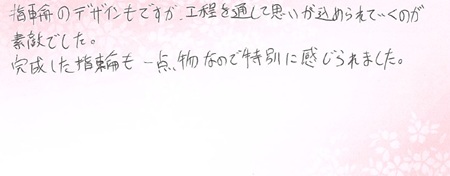 指輪のデザインもですが、工程を通して思いが込められていくのが
素敵でした。
完成した指輪も一点物なので特別に感じられました。